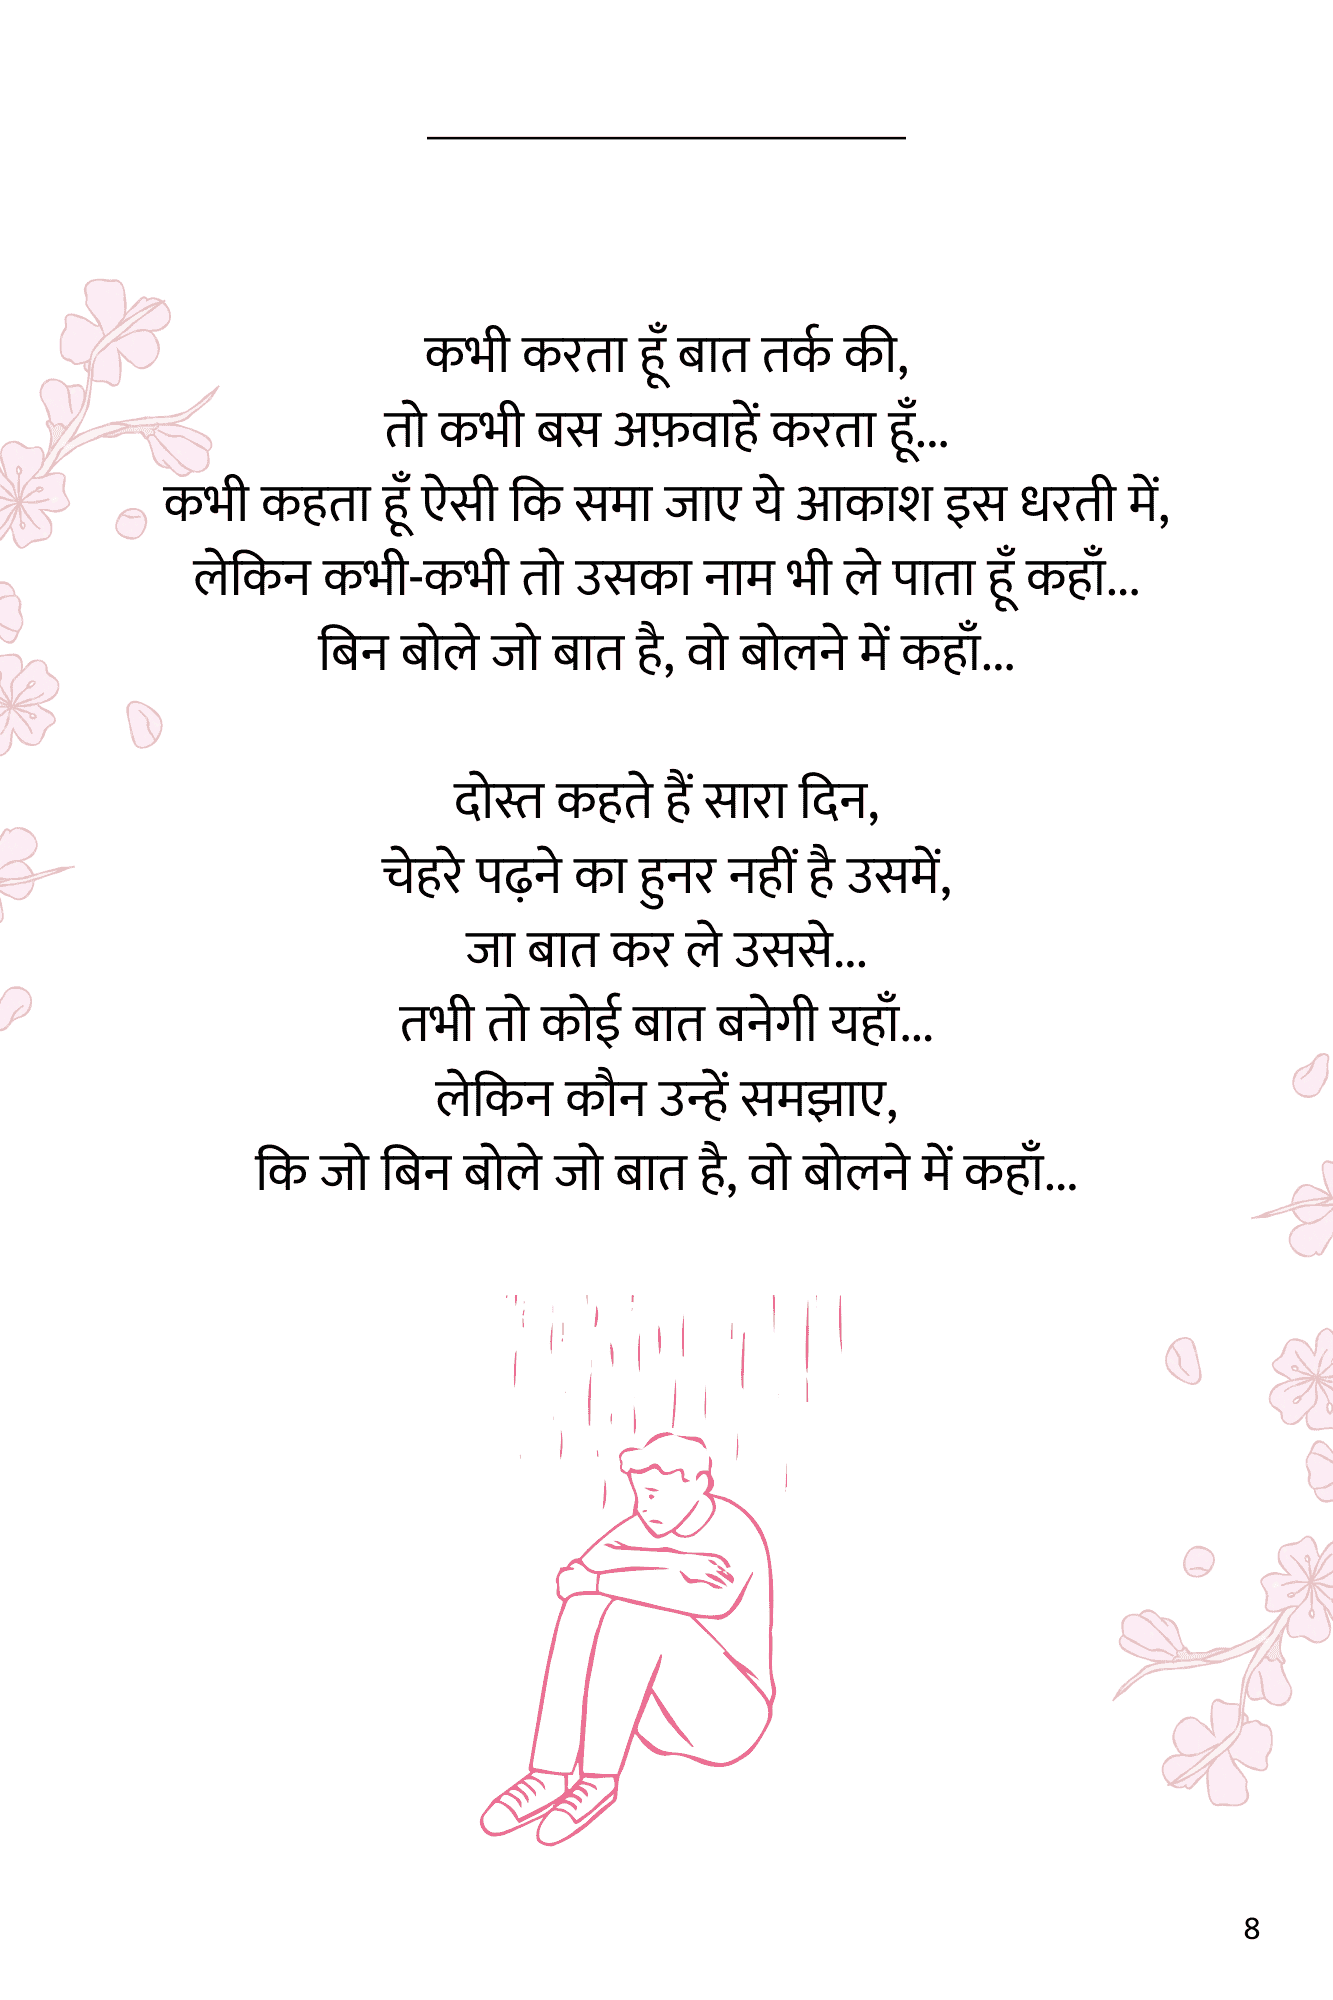 कभी करता हूँ बात तर्क की,
तो कभी बस अफ़वाहें करता हूँ...
कभी कहता हूँ ऐसी कि समा जाए ये आकाश इस धरती में,
लेकिन कभी-कभी तो उसका नाम भी ले पाता हूँ कहाँ...
बिन बोले जो बात है, वो बोलने में कहाँ...
दोस्त कहते हैं सारा दिन,
चेहरे पढ़ने का हुनर नहीं है उसमें,
जा बात कर ले उससे...
तभी तो कोई बात बनेगी यहाँ...
लेकिन कौन उन्हें समझाए,
कि जो बिन बोले जो बात है, वो बोलने में कहाँ...
8